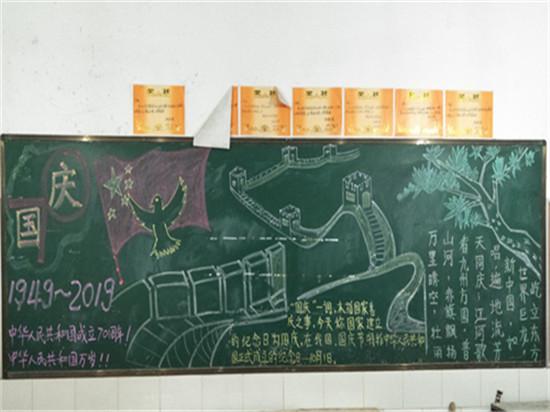 国庆
1949~2019
中华人民共和国成立70周年!
中华人民共和国万岁!!
"国庆"一词,本指国家喜
庆之事,今天称国家建立
的纪念日为国庆,在我国,国庆节特指中华人民共
国正式成立的纪念日—10月1日。
万里晴空,壮丽
山河,赤帜飘扬
看九州方圆,普
天同庆;江河歌
唱遍地流芳
新中国,如
世界巨龙,
屹立东方